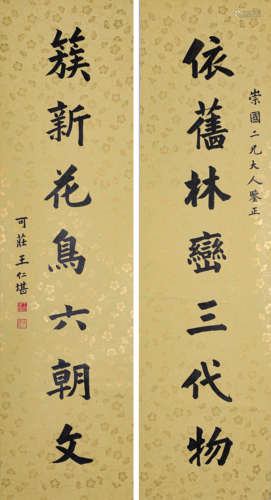 崇國二兄大人鑒正
依舊林巒三代物
簇新花鳥六朝文
可莊王仁堪